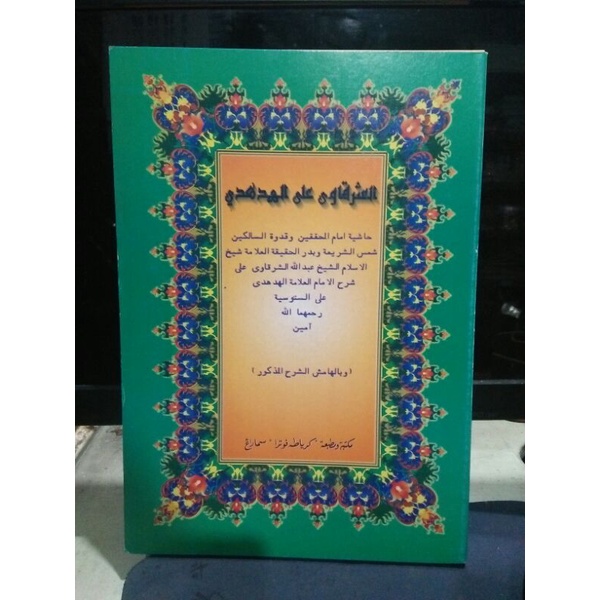 الشرقاوى على الهدهدي
حاشية امام المحققين وقدوة السالكين
شمس الشريعة وبدر الحقيقة العلامة شيخ
الاسلام الشيخ عبدالله الشرقاوى على
شرح الامام العلامة الهدهدى
على السنوسية
رحمهما الله
آمين
(وبالهامش الشرح المذكور)
مكتبة ومطبعة "كرياطه فوترا" سمارڠ